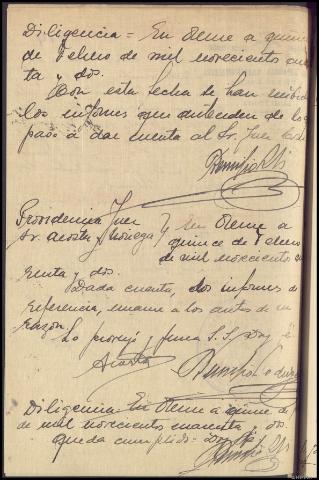 Diligencia = En Orense a quince
de Febrero de mil novecientos cuaren
ta y dos.
Con esta fecha se han recibido
los informes que anteceden de los
paso a dar cuenta al Sr. Juez
Providencia Juez
Sr. Acosta y Noriega } En Orense a
quince de Febrero
de mil novecientos cua
renta y dos.
Dada cuenta, los informes de
referencia, unanse a los autos de su
razon.
Lo proveyó y firma S.S. Doy fé
Acosta
Diligencia = En Orense a quince de
de mil novecientos cuarenta y dos.
queda cumplido = Doy fé